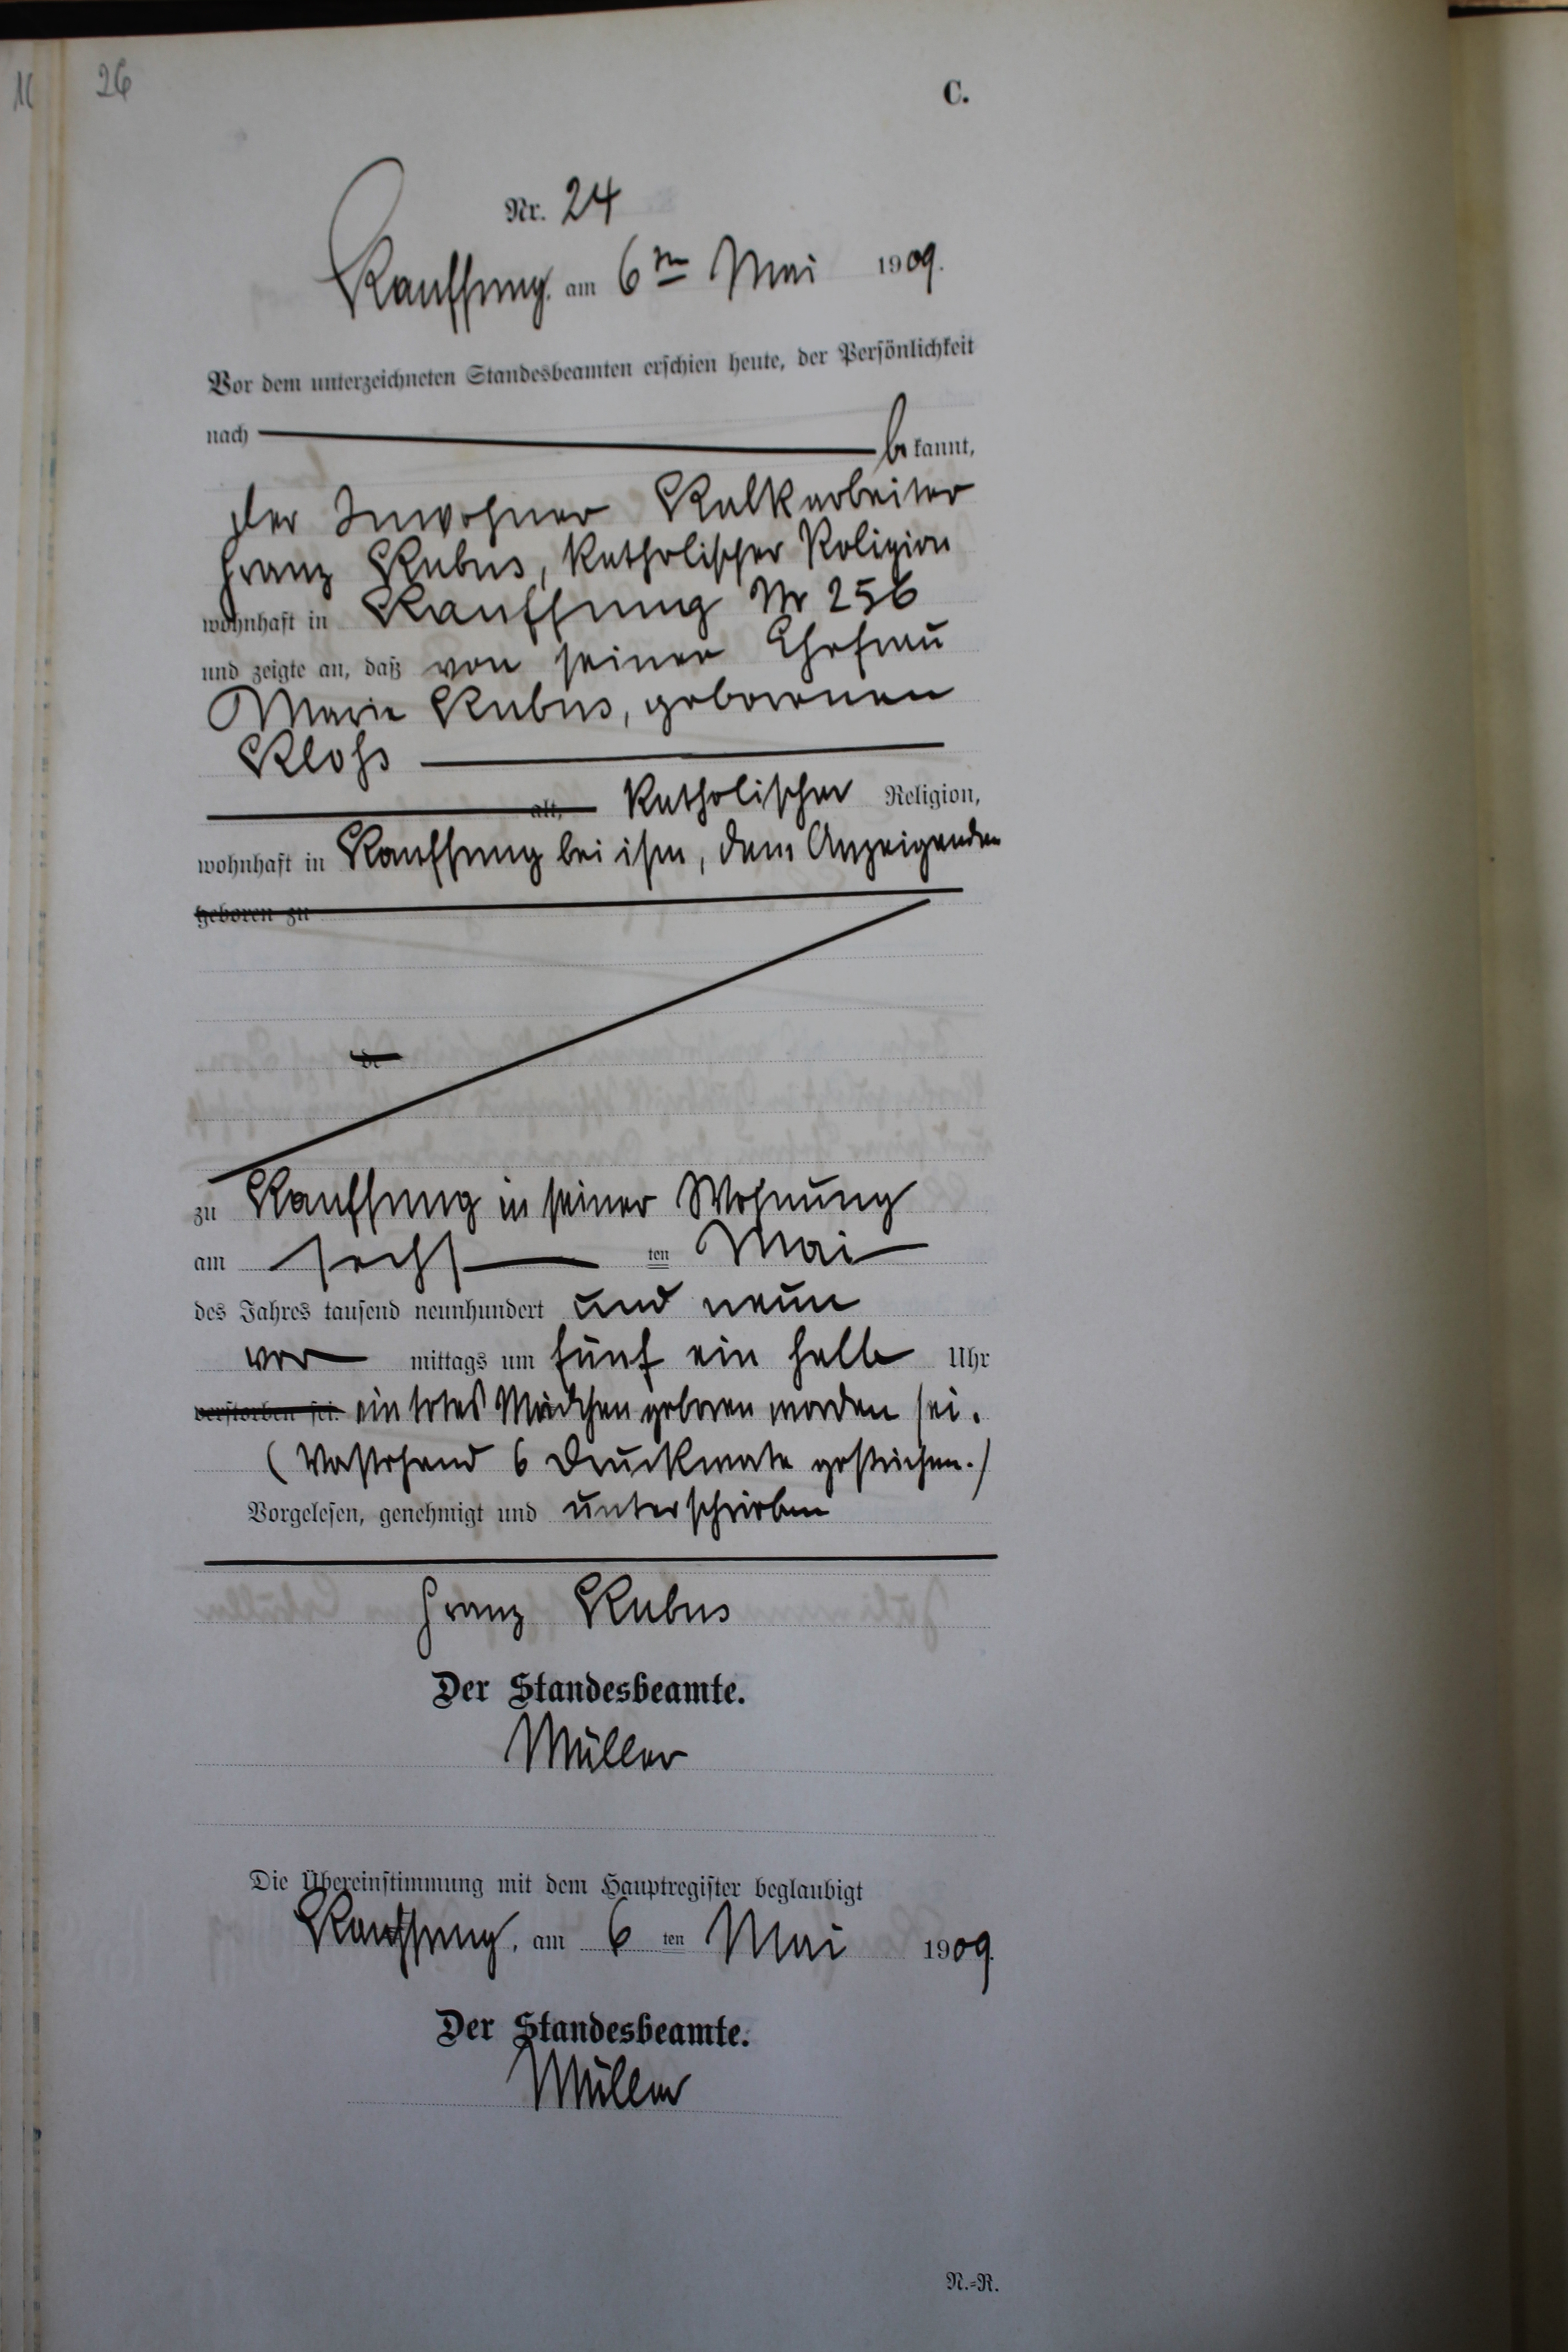 11 26
C.
Nr. 24
Kauffung, am 6ten Mai 1909.
Vor dem unterzeichneten Standesbeamten erschien heute, der Persönlichkeit
nach be kannt,
der Inwohner Kalkarbeiter
Franz Kubus, katholischer Religion
wohnhaft in Kauffung Nr 256
und zeigte an, daß von seiner Ehefrau
Marie Kubus, geborenen
Kloss
alt, katholischer Religion,
wohnhaft in Kauffung bei ihm, dem Anzeigenden
geboren zu
de
zu Kauffung in seiner Wohnung
am sechs ten Mai
des Jahres tausend neunhundert und neun
vor mittags um fünf ein halb Uhr
verstorben sei. ein totes Mädchen geboren worden sei.
(Vorstehend 6 Druckworte gestrichen.)
Vorgelesen, genehmigt und unterschrieben
Franz Kubus
Der Standesbeamte.
Müller
Die Übereinstimmung mit dem Hauptregister beglaubigt
Kauffung, am 6 ten Mai 1909.
Der Standesbeamte.
Müller
N.=R.